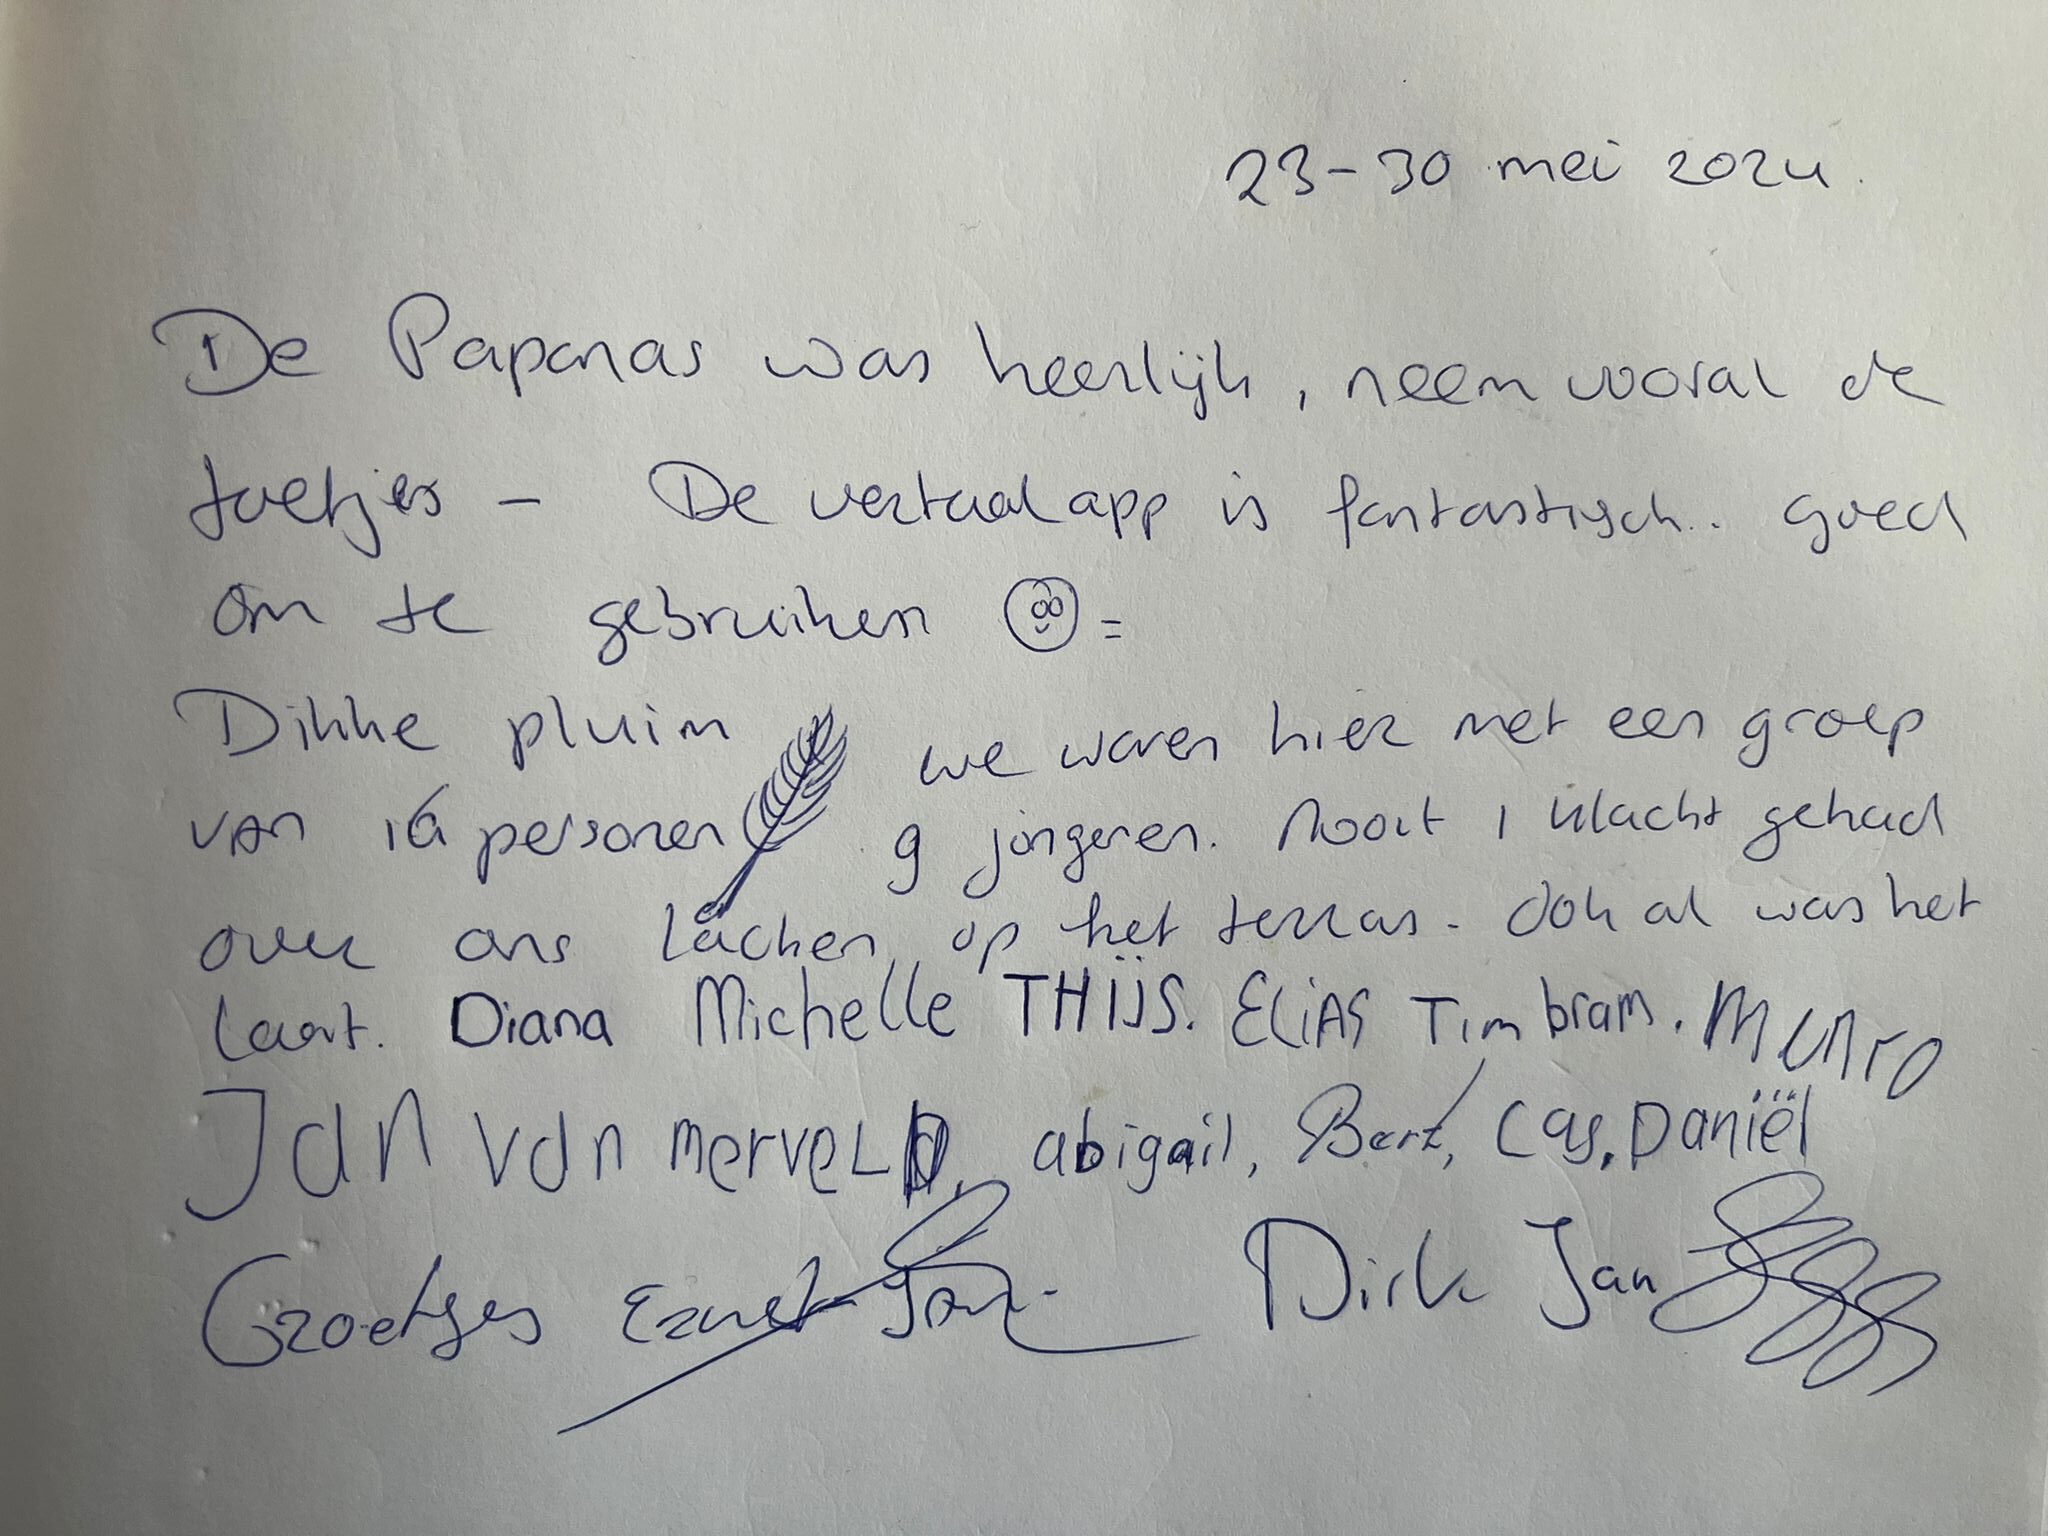 23-30 mei 2024.
De Papanas was heerlijk, neem vooral de
toetjes - De vertaal app is fantastisch.. goed
om te gebruiken =
Dikke pluim we waren hier met een groep
van 16 personen 9 jongeren. Nooit 1 klacht gehad
over ons lachen op het terras. Ook al was het
laat. Diana Michelle THIJS. ELiAS Tim bram. Menro
Jan van merveLD, abigail, Bert, Cas, Daniël
Groetjes Dirk Jan